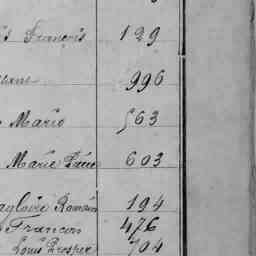 François 129
996
Mario 563
Marie 603
Romain 194
François 476
Louis Prosper 704